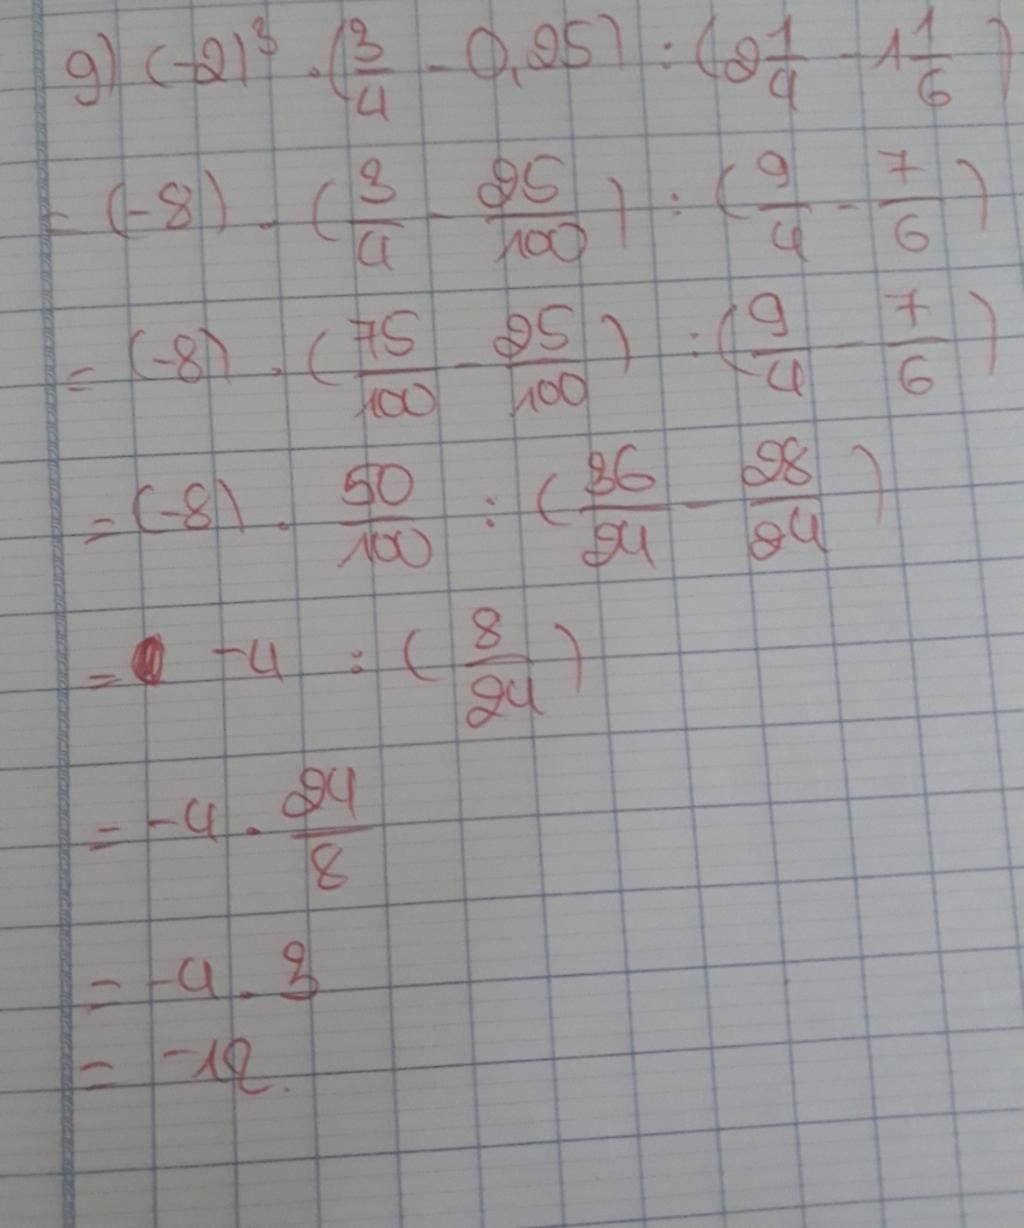 g) (-2)³ . (3/4 - 0,25) : (2 1/4 - 1 1/6)
= (-8) . (3/4 - 25/100) : (9/4 - 7/6)
= (-8) . (75/100 - 25/100) : (9/4 - 7/6)
= (-8) . 50/100 : (36/24 - 28/24)
= -4 : (8/24)
= -4 . 24/8
= -4 . 3
= -12.